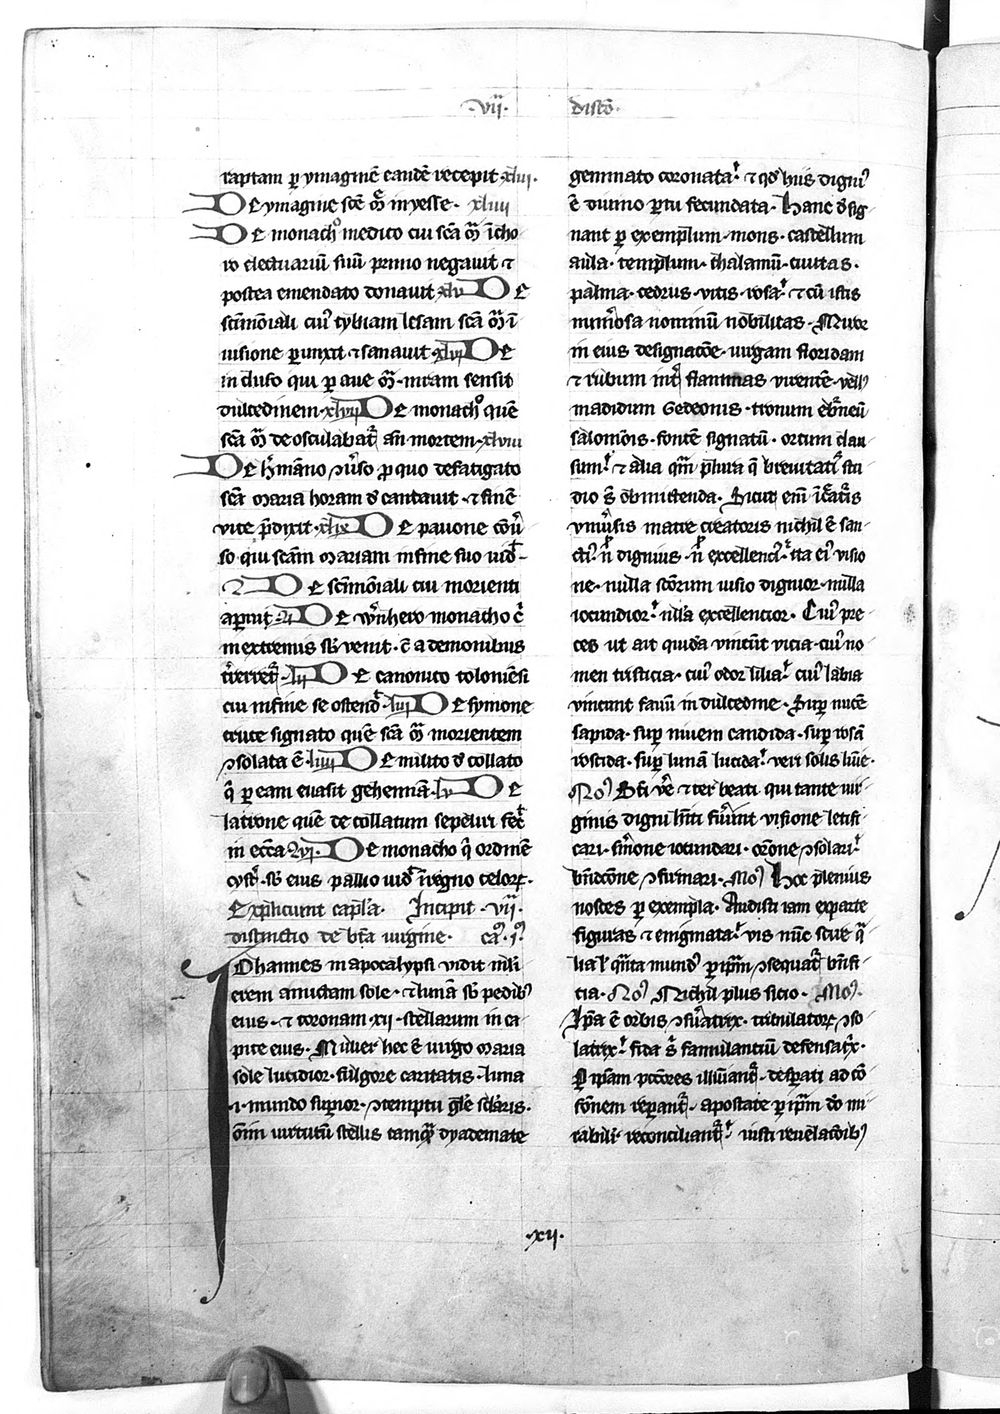 .vii. distō.
raptam ꝑ ymaginē eandē recepit .xliii.
De ymagine scē Mͣ in yesse. xliiii
De monacho medico cui scā Mͣ īcho
ro electuariū suū primo negauit ⁊
postea emendato donauit .xlv De
scīmōiali cui᷒ tybiam lesam scā Mͣ ī
uisione ꝑunxit ⁊ sanauit .xlvi De
incluso qui ꝑ aue Mͣ. miram sensit
dulcedinem. xlvii De monacho quē
scā Mͣ deosculabat᷑ an̄ mortem .xlviii
De h̓māno ↄu̓so pro quo defatigato
scā Maria horam decantauit. ⁊ finē
vite p̄dixit .xlix De pauone cōu̓
so qui scām Mariam in fine suo uid̓
.l. De scīmōiali cui morienti
aperuit. li De W̓nhero monacho c̓
in extremis sb̓uenit. c̄ a demonibus
t̓reret᷑. lii De canonico coloniēsi
cui in fine se ostend̓. liii De symone
cruce signato quē scā Mͣ morientem
ↄsolata ē. liiii De milite decollato
q̓ ꝑ eam euasit gehennā. lv De
latrone quē decollatum sepeliri fec̓
in ecc̄a. lvi. De monacho q̓ ordinē
cyst̓. sb̓ eius pallio uid̓ ī regno celoꝝ.
Expliciunt capl̄a. Incipit .vii.
distinctio de bt̄a uirgine. ca᷒. i᷒
Iohannes in apocalypsi vidit muli
erem amictam sole. ⁊ lunā sb̓ pedib᷒
eius. ⁊ coronam .xii. stellarum in ca
pite eius. Mulier hec ē uirgo Maria
sole lucidior. fulgore caritatis. luna
.i. mundo superior. ↄtemptu gl̄e sc̄laris.
ōnīm virtutū stellis tamqͣ dyademate
gemmato coronata. ⁊ qd̓ hiis digni᷒
ē diuino partu fecundata. Hanc desig
nant ꝑ exemplum. mons. castellum
aula. templum. thalamū. ciuitas.
palma. cedrus. vitis. rosa. ⁊ cū istis
num̓osa nominū nobilitas. Mitto
in eius designatōe. uirgam floridam
⁊ rubum int̓ flammas virentē. vell᷒
madidum Gedeonis. tronum ebr̄neū
salomonis. fontē signatū. ortum clau
sum. ⁊ alia qm̄ plura q̄ breuitatis stu
dio s̄ obmittenda. Sicut em̄ ī c̓atis
vniu̓sis matre creatoris nichil ē san
cti᷒ n̄ dignius. n̄ excellenci᷒. ita ei᷒ visio
ne. nulla scōrum uisio dignior. nulla
iocundior. nulla excellencior. Cui᷒ pre
ces ut ait quida vincūt vicia. cui᷒ no
men tristicia. cui᷒ odor lilia. cui᷒ labia
vincunt fauū in dulcedine. Suꝑ nucē
sapida. suꝑ niuem candida. suꝑ rosā
roscida. suꝑ lunā lucida. veri solis lūie.
No᷒ Bti v̓e ⁊ ter beati qui tante uir
ginis digni hīti fu̓int visione letifi
cari. s̓mone iocundari. orōne ↄsolari.
bn̄dcōne ↄfirmari. Mo᷒ Hoc plenius
nosces ꝑ exempla. Audisti iam ex parte
figuras ⁊ enigmata. vis nūc scire q̄
lia l̓ qͣnta mund᷒ ꝑ ip̄am ↄsequat᷑ bn̄fi
cia. No᷒ Nichil plus sicio. Mo᷒.
Ip̄a ē orbis ↄsu̓atrix. tribulatoꝝ ↄso
latrix. fida s̄ famulanciū defensat̓x.
ꝑ ip̄am pctōres illu̓ant᷑. despati ad cō
fōnem reperant᷑. apostate ꝑ ip̄am dō mi
rabilit̓ reconciliant᷑. iusti reuelatōib᷒
.xii.